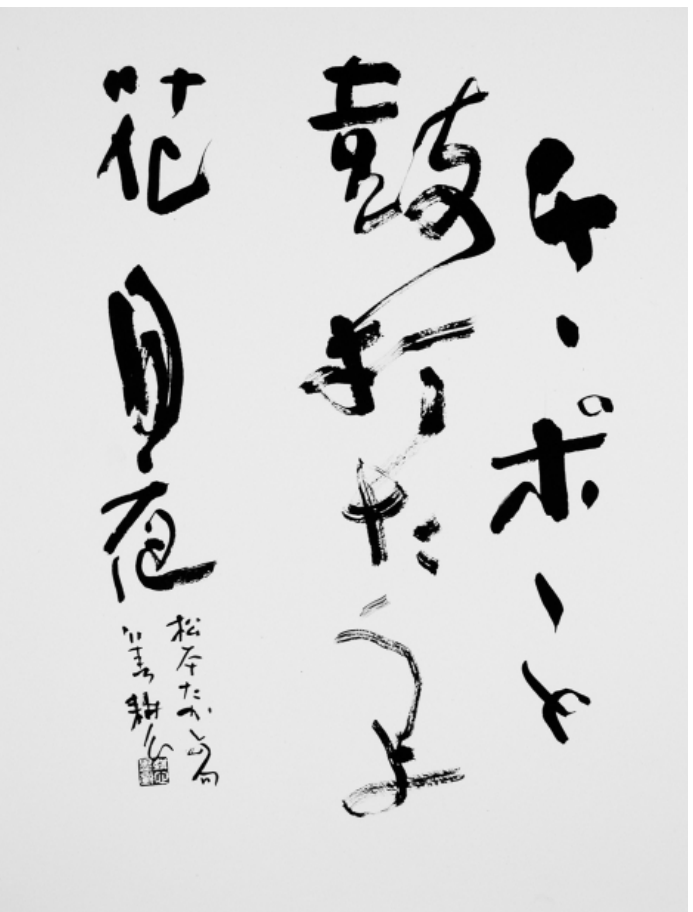 チヽポヽと
鼓打たうよ
花月夜
松本たかし句